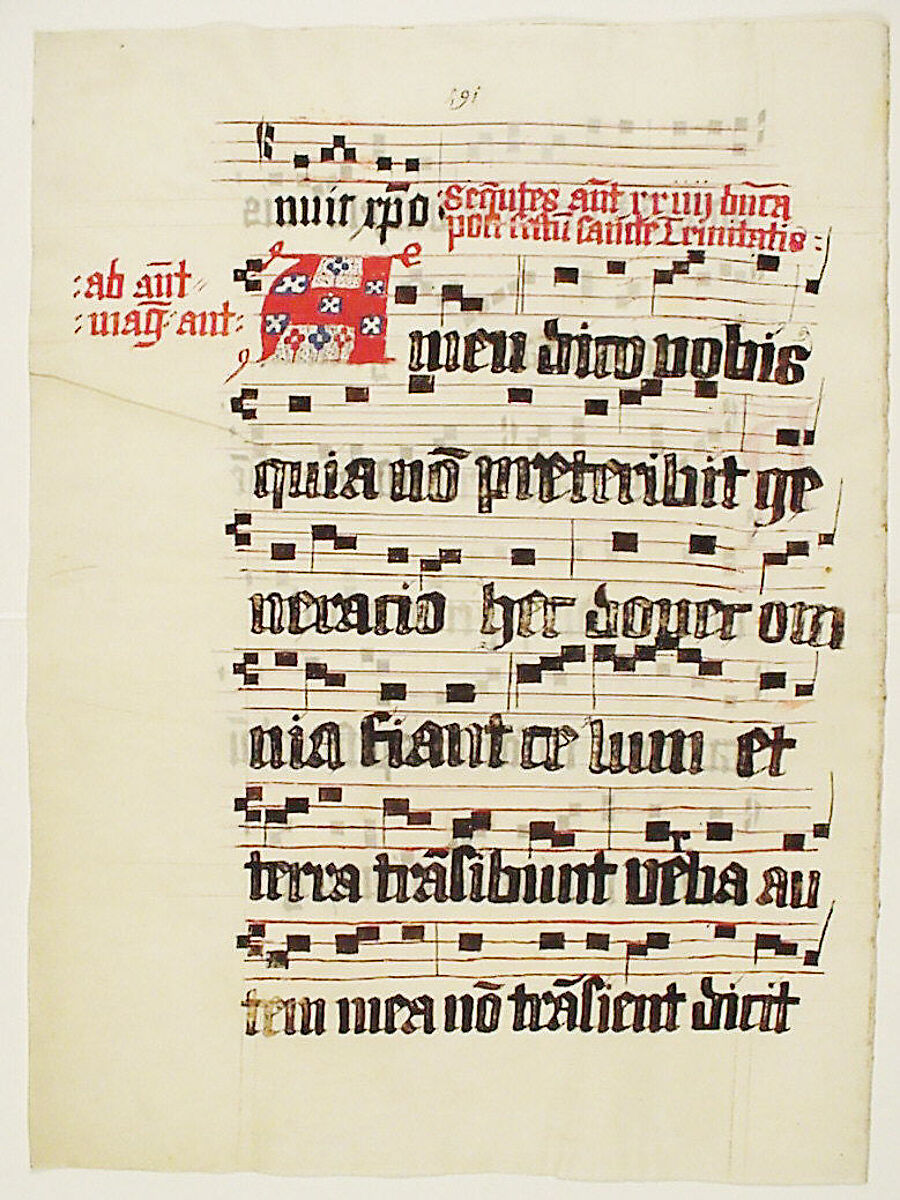 191
nuit xp̄o
Seqūtes an̄t xxiiij dn̄ica
post festū sancte Trinitatis
:ab an̄t
:maḡ ant:
Amen dico vobis
quia nō preteribit ge
neracio hec donec om
nia fiant ce lum et
terra trāsibunt verba au
tem mea nō trāsient dicit